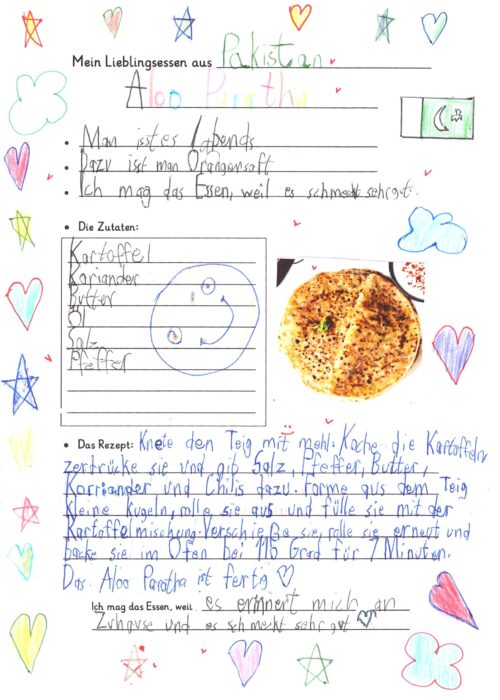 Mein Lieblingsessen aus Pakistan
Aloo Paratha
• Man isst es abends
• Dazu isst man Orangensaft
• Ich mag das Essen, weil es schmeckt sehr gut.
• Die Zutaten:
Kartoffel
Koriander
Butter
Öl
Salz
Pfeffer
• Das Rezept: Knete den Teig mit mehl. Koche die Kartoffeln
zerdrücke sie und gib Salz, Pfeffer, Butter,
Korriander und Chilis dazu. Forme aus dem Teig
kleine Kugeln, rolle sie aus und fülle sie mit der
Kartoffelmischung. Verschließe sie, rolle sie erneut und
backe sie im Ofen bei 116 Grad für 7 Minuten.
Das Aloo Paratha ist fertig ♡
Ich mag das Essen, weil es erinnert mich an
Zuhause und es schmeckt sehr gut ♡